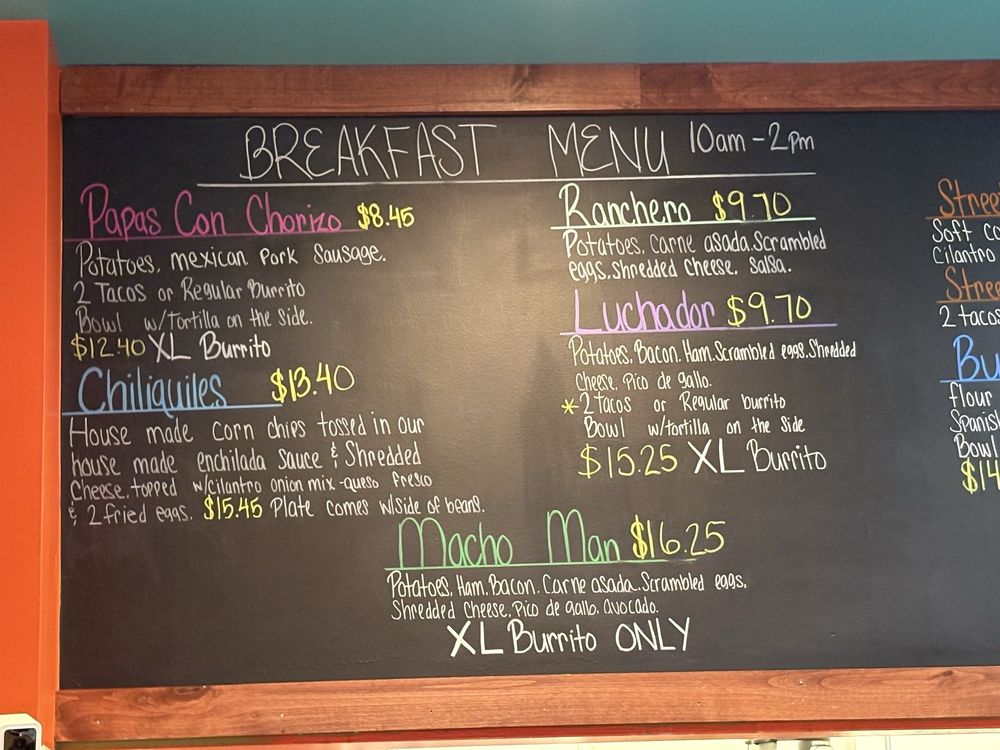 BREAKFAST MENU 10am-2pm
Papas Con Chorizo $8.45
Potatoes, mexican Pork Sausage.
2 Tacos or Regular Burrito
Bowl w/Tortilla on the Side.
$12.40 XL Burrito
Chiliquiles $13.40
House made corn chips tossed in our
house made enchilada sauce & Shredded
Cheese. topped w/cilantro onion mix-queso fresco
& 2 fried eggs. $15.45 Plate comes w/side of beans.
Ranchero $9.70
Potatoes. Carne asada. Scrambled
eggs. Shredded Cheese. Salsa.
Luchador $9.70
Potatoes. Bacon. Ham. Scrambled eggs. Shredded
Cheese, Pico de gallo.
*2 Tacos or Regular burrito
Bowl w/tortilla on the Side
$15.25 XL Burrito
Macho Man $16.25
Potatoes, Ham. Bacon. Carne asada. Scrambled eggs.
Shredded Cheese, Pico de gallo. avocado.
XL Burrito ONLY
Soft
Cilantro
2 tacos
flour
Bowl
$14